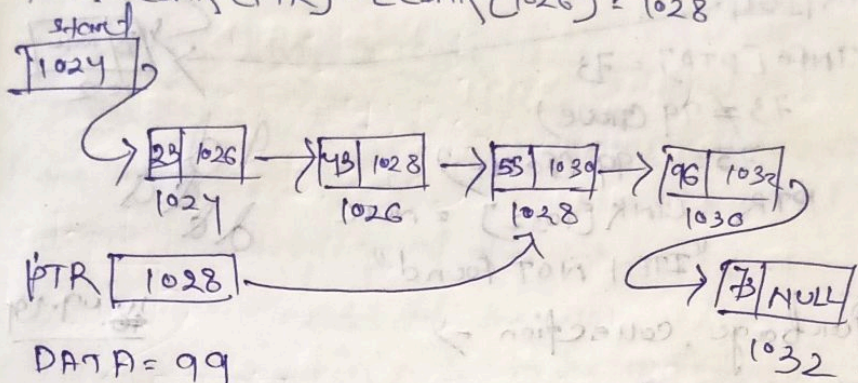 [PTR] = LINK [1026] = 1028
start
1024
23 1026
43 1028
55 1030
96 1032
1024
1026
1028
1030
PTR 1028
73 NULL
1032
DATA = 99